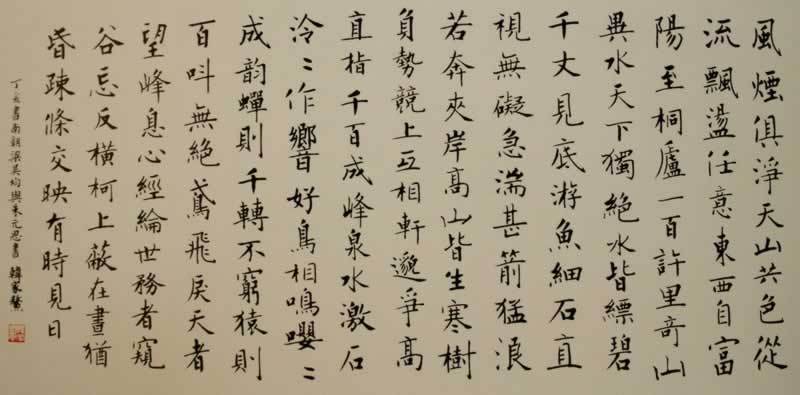 風煙俱淨天山共色從
流飄盪任意東西自富
陽至桐廬一百許里奇山
異水天下獨絕水皆縹碧
千丈見底游魚細石直
視無礙急湍甚箭猛浪
若奔夾岸高山皆生寒樹
負勢競上互相軒邈爭高
直指千百成峰泉水激石
泠〻作響好鳥相鳴嚶〻
成韵蟬則千轉不窮猿則
百叫無絕鳶飛戾天者
望峰息心經綸世務者窺
谷忘反橫柯上蔽在晝猶
昏疎條交映有時見日
丁亥書南朝梁吳均與朱元思書 韓家鰲